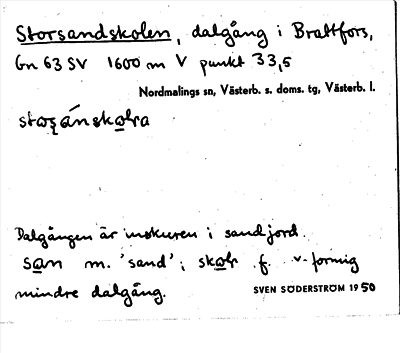 Storsandskolen, dalgång i Brattfors,
Gn 63 SV 1600 m V punkt 33,5
Nordmalings sn, Västerb. s. doms. tg, Västerb. l.
Dalgången är inskuren i sandjord.
san m. 'sand'; f. v-formig
mindre dalgång.
SVEN SÖDERSTRÖM 1950